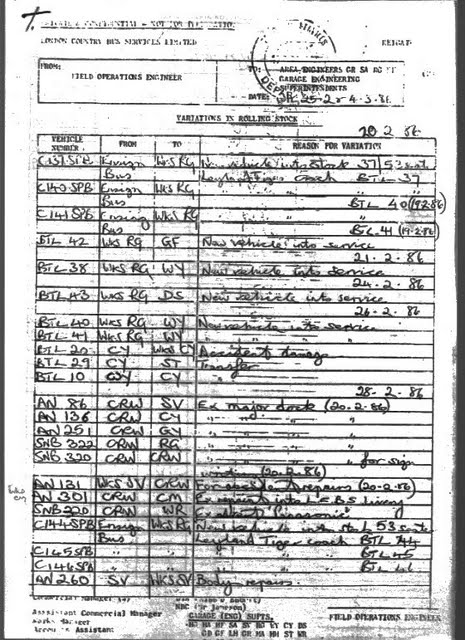 T.
PRIVATE & CONFIDENTIAL - NOT FOR PUBLICATION
LONDON COUNTRY BUS SERVICES LIMITED
REIGAT
FROM:
FIELD OPERATIONS ENGINEER
TO: AREA ENGINEERS GR SA RG
GARAGE ENGINEERING
SUPERINTENDENTS
DATE: 25-2-84-3-86
VARIATIONS IN ROLLING STOCK
20 2 86
VEHICLE NUMBER FROM TO REASON FOR VARIATION
C137SPB Ensign WKS RG New vehicle into stock 37/53 seat
Bus Leyland Tiger Coach BTL 37
C140SPB Ensign WKS RG " " "
Bus BTL 40 (19.2.86)
C141SPB Ensing WKS RG " " "
Bus BTL 41 (19.2.86)
BTL 42 WKS RG GF New vehicle into service
21.2.86
BTL 38 WKS RG WY New vehicle into service
24.2.86
BTL 43 WKS RG DS New vehicle into service
26.2.86
BTL 40 WKS RG WY New vehicle into service
BTL 41 WKS RG WY " " "
BTL 20 CY WKS CY Accident damage
BTL 29 CY ST Transfer
BTL 10 CY "
28.2.86
AN 86 CRW SV Ex major dock (20.2.86)
AN 136 CRW CY " " "
AN 251 CRW GY " " "
SNB 322 CRW RG " " "
SNB 320 CRW CRW " " " for sign
(20.2.86)
AN 131 WKS SV CRW For accident repairs (20.2.86)
AN 301 CRW CM Ex repaint into LCBS livery
SNB220 CRW WR Ex advert "Panasonic"
C144SPB Ensign WKS RG New vehicle into stock 53 seat
Bus Leyland Tiger coach BTL 44
C145SPB " " " BTL 45
C146SPB " " " BTL 46
AN 260 SV WKS SV Body repairs
Assistant Commercial Manager
Works Manager
Accounts Assistant
GARAGE (ENG) SUPTS.
FIELD OPERATIONS ENGINEER